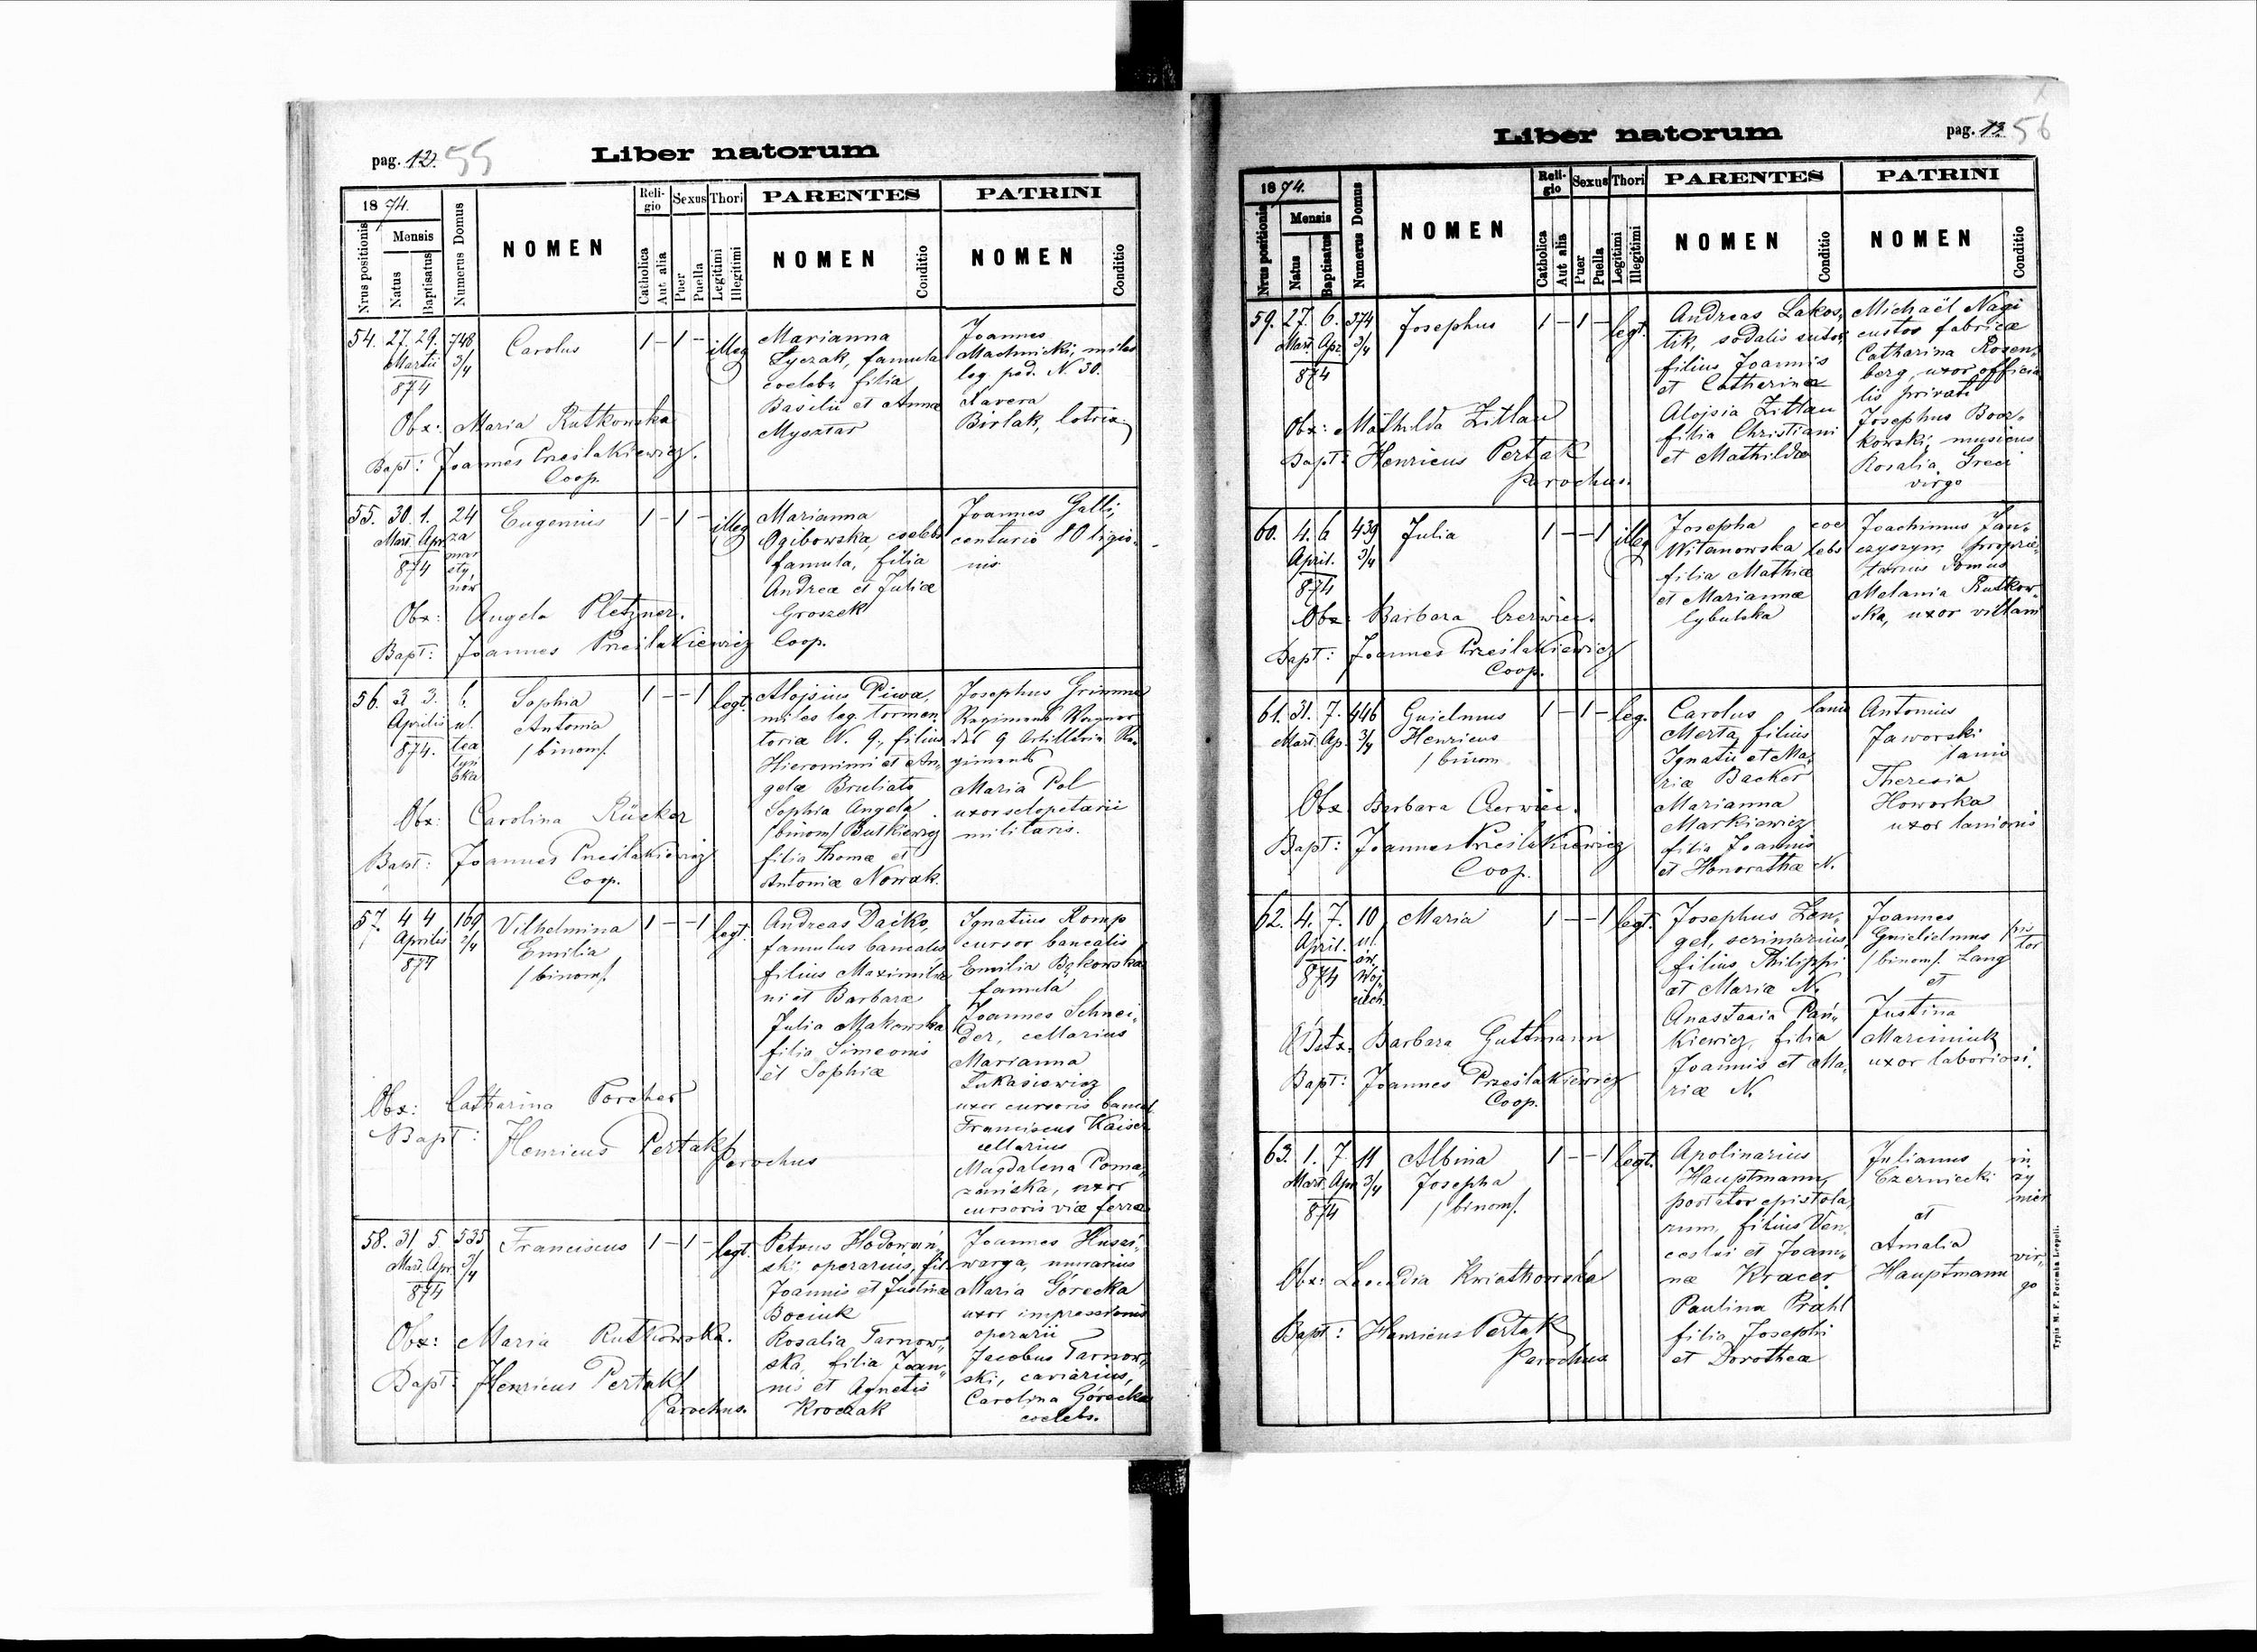 pag. 12. 55
Liber natorum
1874.
Nrus positionis
Mensis
Natus
Baptisatus
Numerus Domus
NOMEN
Religio
Catholica
Aut alia
Sexus
Puer
Puella
Thori
Legitimi
Illegitimi
PARENTES
NOMEN
Conditio
PATRINI
NOMEN
Conditio
54. 27. 29. 748 Carolus 1 - 1 - illeg
Martii 3/4
874
Marianna
Łyczak, famula
coelebs filia
Basilii et Anna
Mysztar
Joannes
Machnicki, miles
leg. ped. N. 30.
Xavera
Birlak, lotrix
Obx: Maria Rutkowska
Bapt: Joannes Prześlakiewicz.
Coop.
55. 30. 1. 24 Eugenius 1 - 1 - illeg
Mart. Apr. za
874 mar
sty,
nów
Marianna
Ogibowska, coelebs
famula, filia
Andreæ et Juliæ
Groszek
Joannes Galli,
centurio 80 ligio-
nis
Obx: Angela Pletzner.
Bapt: Joannes Prześlakiewicz Coop.
56. 3 3. 6. Sophia 1 - - 1 legt.
Aprilis ul. Antonia
874. tea /binom/.
tyń
ska
Alojsius Piwa,
miles leg. tormen
toriæ N. 9., filius
Hieronimi et An-
gelæ Bruliato
Sophia Angela
/binom/ Butkiewicz
filia Thomæ et
Antoniæ Nowak.
Josephus Grimme
Regiments Wagner
des 9 Artillerie Re-
giments
Maria Pol
uxor sclopetarii
militaris.
Obx: Carolina Rücker
Bapt: Joannes Prześlakiewicz
Coop.
57. 4 4 169 Vilhelmina 1 - - 1 legt.
Aprilis 3/4 Emilia
874 /binom/.
Andreas Daćko,
famulus bancalis
filius Maximilia
ni et Barbaræ
Julia Makowska
filia Simeonis
et Sophiæ
Ignatius Romp
cursor bancalis
Emilia Bąkowska
famula
Joannes Schnei-
der, cellarius
Marianna
Łukasiewicz
uxor cursoris bancal
Franciscus Kaiser
cellarius
Magdalena Poma-
zańska, uxor
cursoris viæ ferreæ
Obx: Catharina Porcher
Bapt: Henricus Pertak
Parochus
58. 31 5 535 Franciscus 1 - 1 - legt.
Mart. Apr. 3/4
874
Petrus Hodowań,
ski operarius, fil
Joannis et Justinæ
Bociuk
Rosalia Tarnow,
ska, filia Joan,
nis et Agnetis
Kroczak
Joannes Husai-
warga, murarius
Maria Górecka
uxor impressionis
operarii
Jacobus Tarnow-
ski, cariarius,
Carolina Górecka
coelebs.
Obx: Maria Rutkowska.
Bapt: Henricus Pertak
Parochus.
pag. 13. 56
Liber natorum
1874.
Nrus positionis
Mensis
Natus
Baptisatus
Numerus Domus
NOMEN
Religio
Catholica
Aut alia
Sexus
Puer
Puella
Thori
Legitimi
Illegitimi
PARENTES
NOMEN
Conditio
PATRINI
NOMEN
Conditio
59. 27. 6. 374 Josephus 1 - 1 - legt.
Mart. Apr. 3/4
874
Andreas Lakos,
tik, sodalis sutor,
filius Joannis
et Catherinæ
Alojsia Zitlau
filia Christiani
et Mathildæ
Michaël Nagi
custos fabricæ
Catharina Rosen-
berg, uxor officia
lis privati
Josephus Borz-
kowski, musicus
Rosalia Greci
virgo
Obx: Mathilda Zitlau
Bapt: Henricus Pertak
Parochus.
60. 4. 6 439 Julia 1 - - 1 illeg
April. 3/4
874
Josepha coe
Witanowska lebs
filia Mathiæ
et Mariannæ
Cybulska
Joachimus Jan-
czyszyn, proprie-
tarius domus
Melania Rutkow-
ska, uxor villani
Obx: Barbara Czerwiec.
Bapt: Joannes Prześlakiewicz
Coop.
61. 31. 7. 446 Guielmus 1 - 1 - leg.
Mart. Ap. 3/4 Henricus
/binom
Carolus lanio
Merta filius
Ignatii et Ma-
riæ Backer
Marianna
Markiewicz
filia Joannis
et Honorathæ N.
Antonius
Jaworski
lanio
Theresia
Howorka
uxor lanionis
Obx. Barbara Czerwiec.
Bapt: Joannes Prześlakiewicz
Coop.
62. 4. 7. 10 Maria 1 - - 1 legt.
April. ul.
874 św.
Woj
ciech.
Josephus Zen-
gel, scriniarius,
filius Philippi
et Mariæ N.
Anastazia Pań-
kiewicz, filia
Joannis et Ma-
riæ N.
Joannes
Guielielmus pis
/binom/. Lang tor
et
Justina
Marciniuk
uxor laboriosi.
Obstx. Barbara Guttmann
Bapt: Joannes Prześlakiewicz
Coop.
63. 1. 7. 11 Albina 1 - - 1 legt.
Mart. Apr. 3/4 Josepha
874 /binom/.
Apolinarius
Hauptmann,
portator epistola,
rum, filius Ven-
ceslai et Joan-
næ Kracer
Paulina Prahl
filia Josephi
et Dorotheæ
Julianus in
Czerniecki ży
nier
et
Amalia vir-
Hauptmann go
Obx: Leocadia Kwiatkowska
Bapt: Henricus Pertak
Parochus
Typis M. F. Poremba Leopoli.